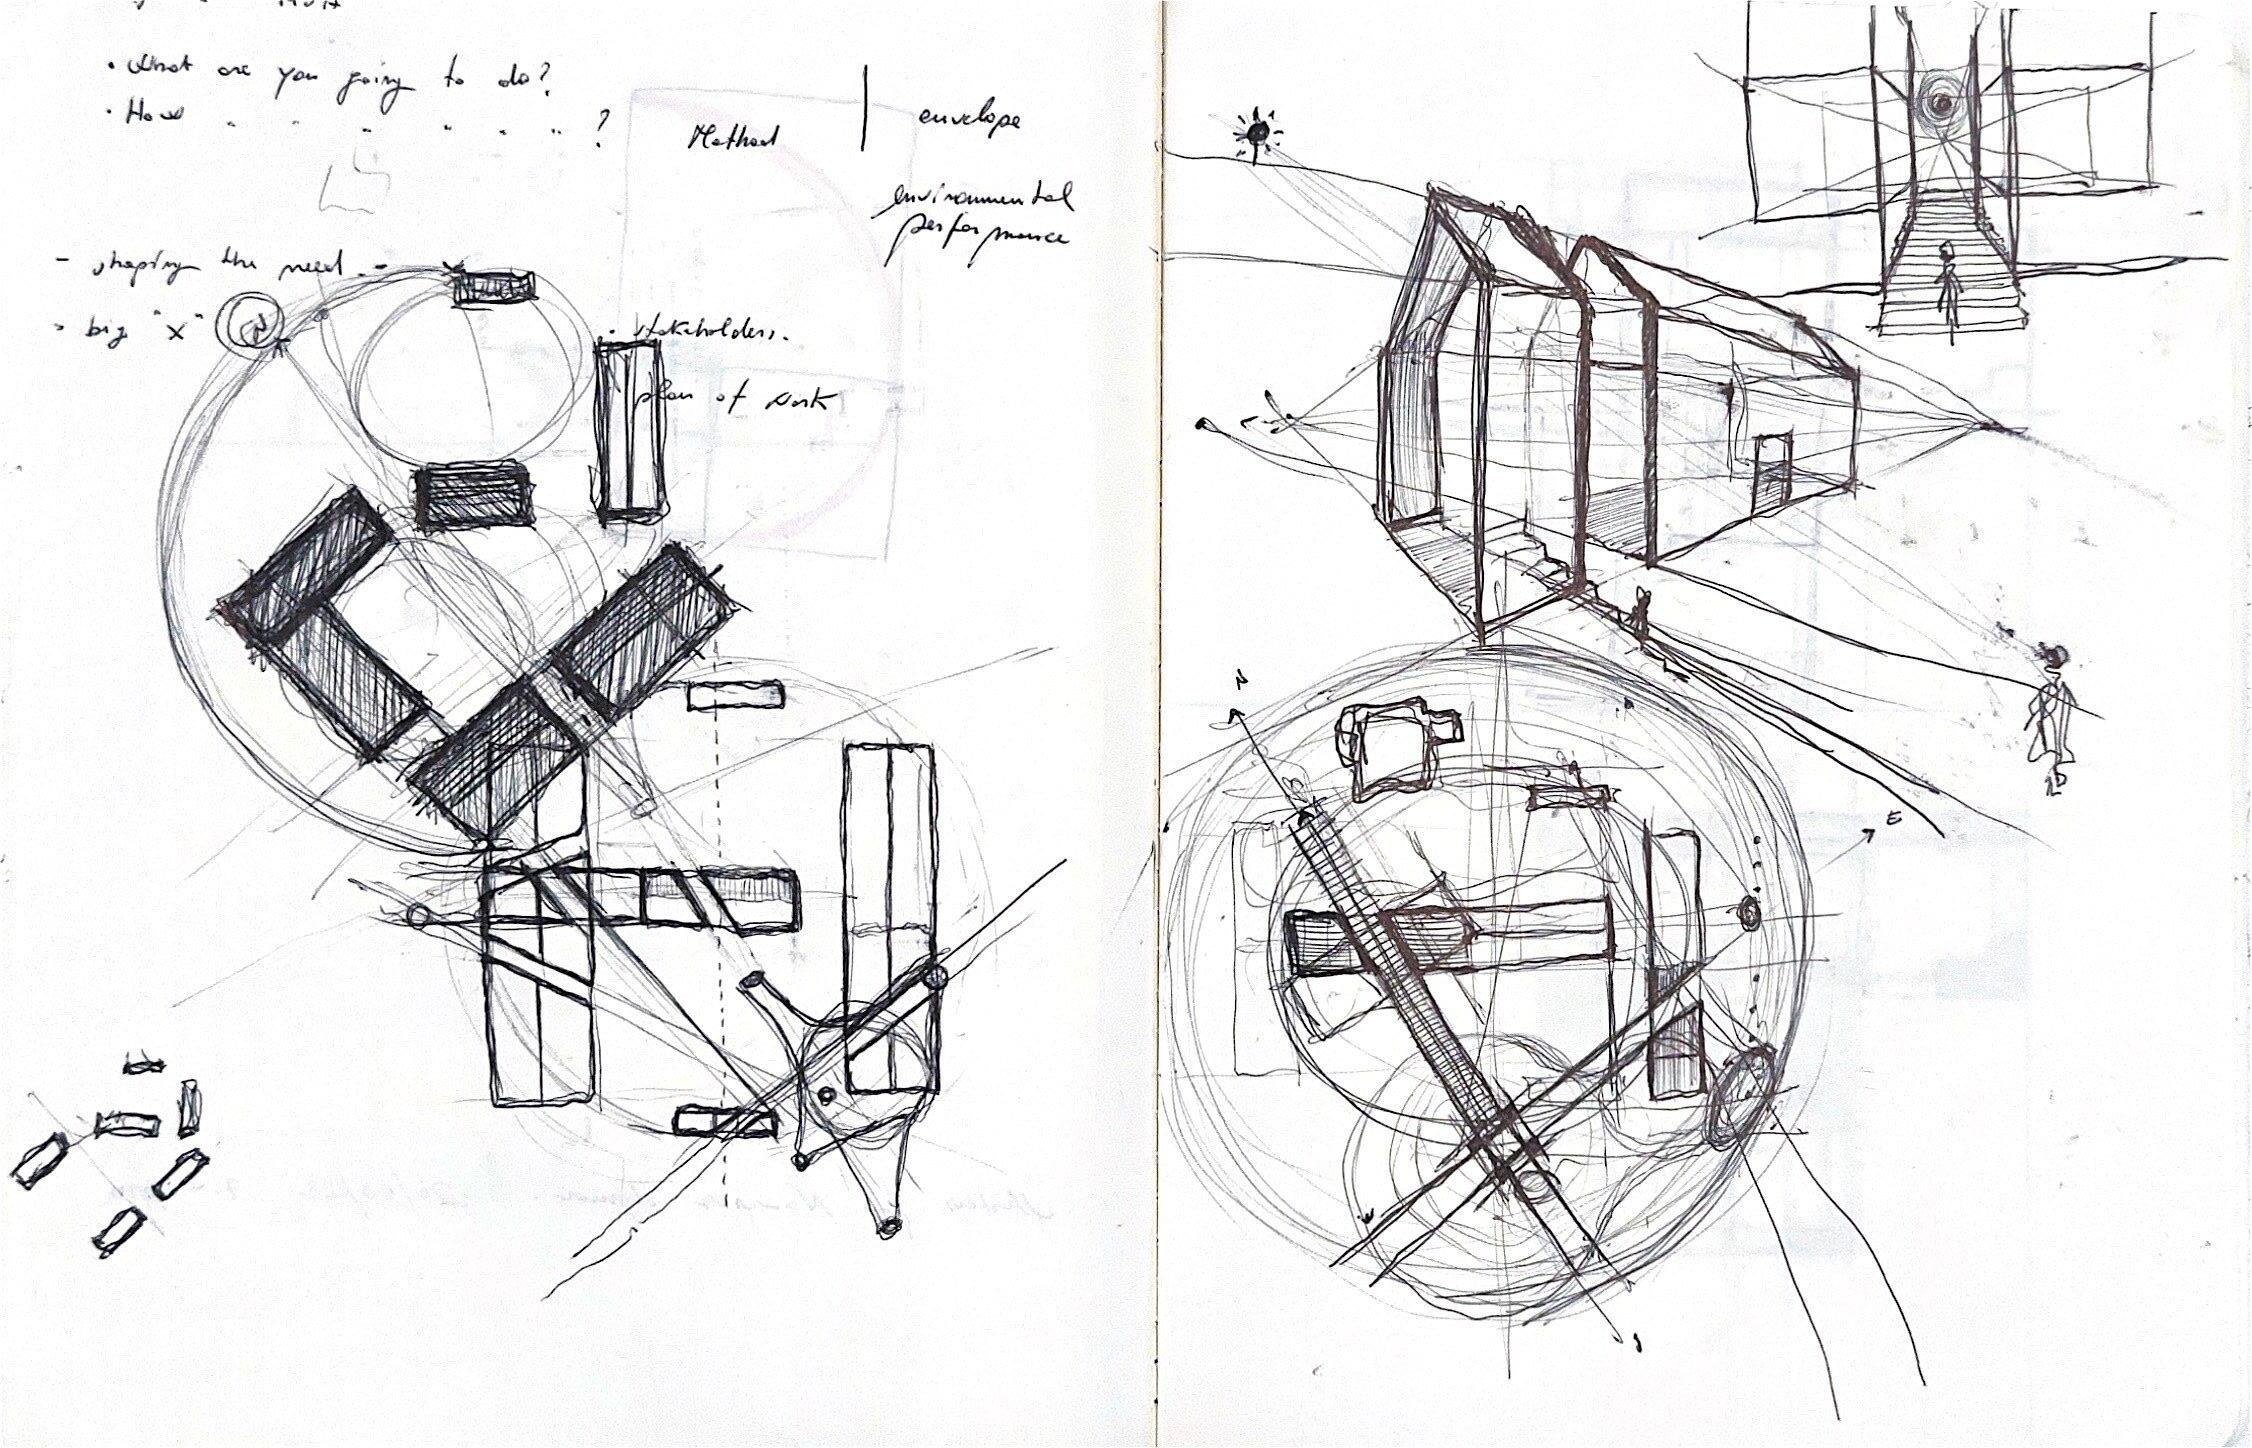 · What are you going to do?
· How " " " " " " ?
Method
envelope
environmental
performance
- shaping the need.-
> big "x"
N
· stakeholders.
plan of work
N
E
S